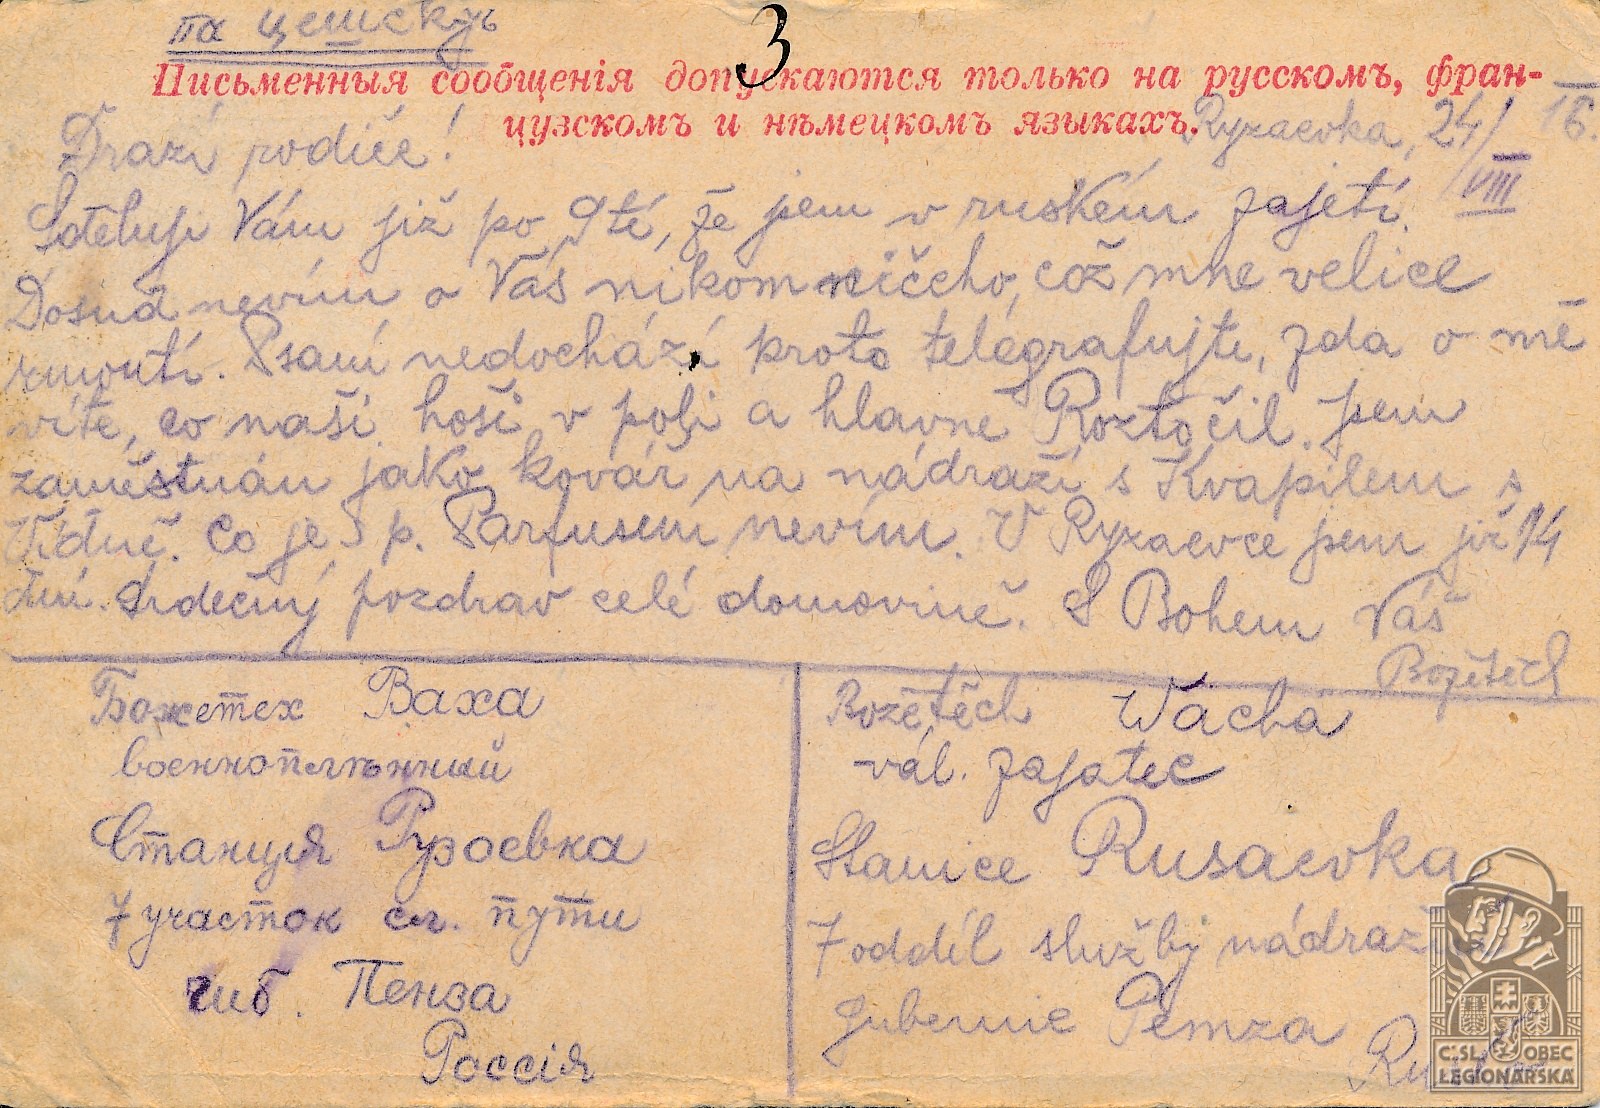 па чешскуь
3
Письменныя сообщенія допускаются только на русскомъ, фран-
цузскомъ и нѣмецкомъ языкахъ.
Ryzaevka, 24/VIII 16.
Drazí rodiče!
Sděluji Vám již po 9té, že jsem v ruském zajetí.
Dosud nevím o Vás nikom ničeho, což mne velice
rmoutí. Psaní nedochází proto telegrafujte, zda o mě
víte, co naši hoši v poli a hlavně Roztočil. Jsem
zaměstnán jako kovář na nádraží s Kvapilem z
Vídně. Co je s p. Parfusem nevím. V Ryzaevce jsem již 14
dní. Srdečný pozdrav celé domovině. S Bohem Váš
Božetěch
Божетех Ваха
военноплѣнный
Станция Рузаевка
7 участок сл. пути
губ. Пенза
Россія
Božetěch Wacha
vál. zajatec
Stanice Rusaevka
7 oddíl služby nádraž
Gubernie Pemza
ČSL. OBEC
LEGIONÁŘSKÁ